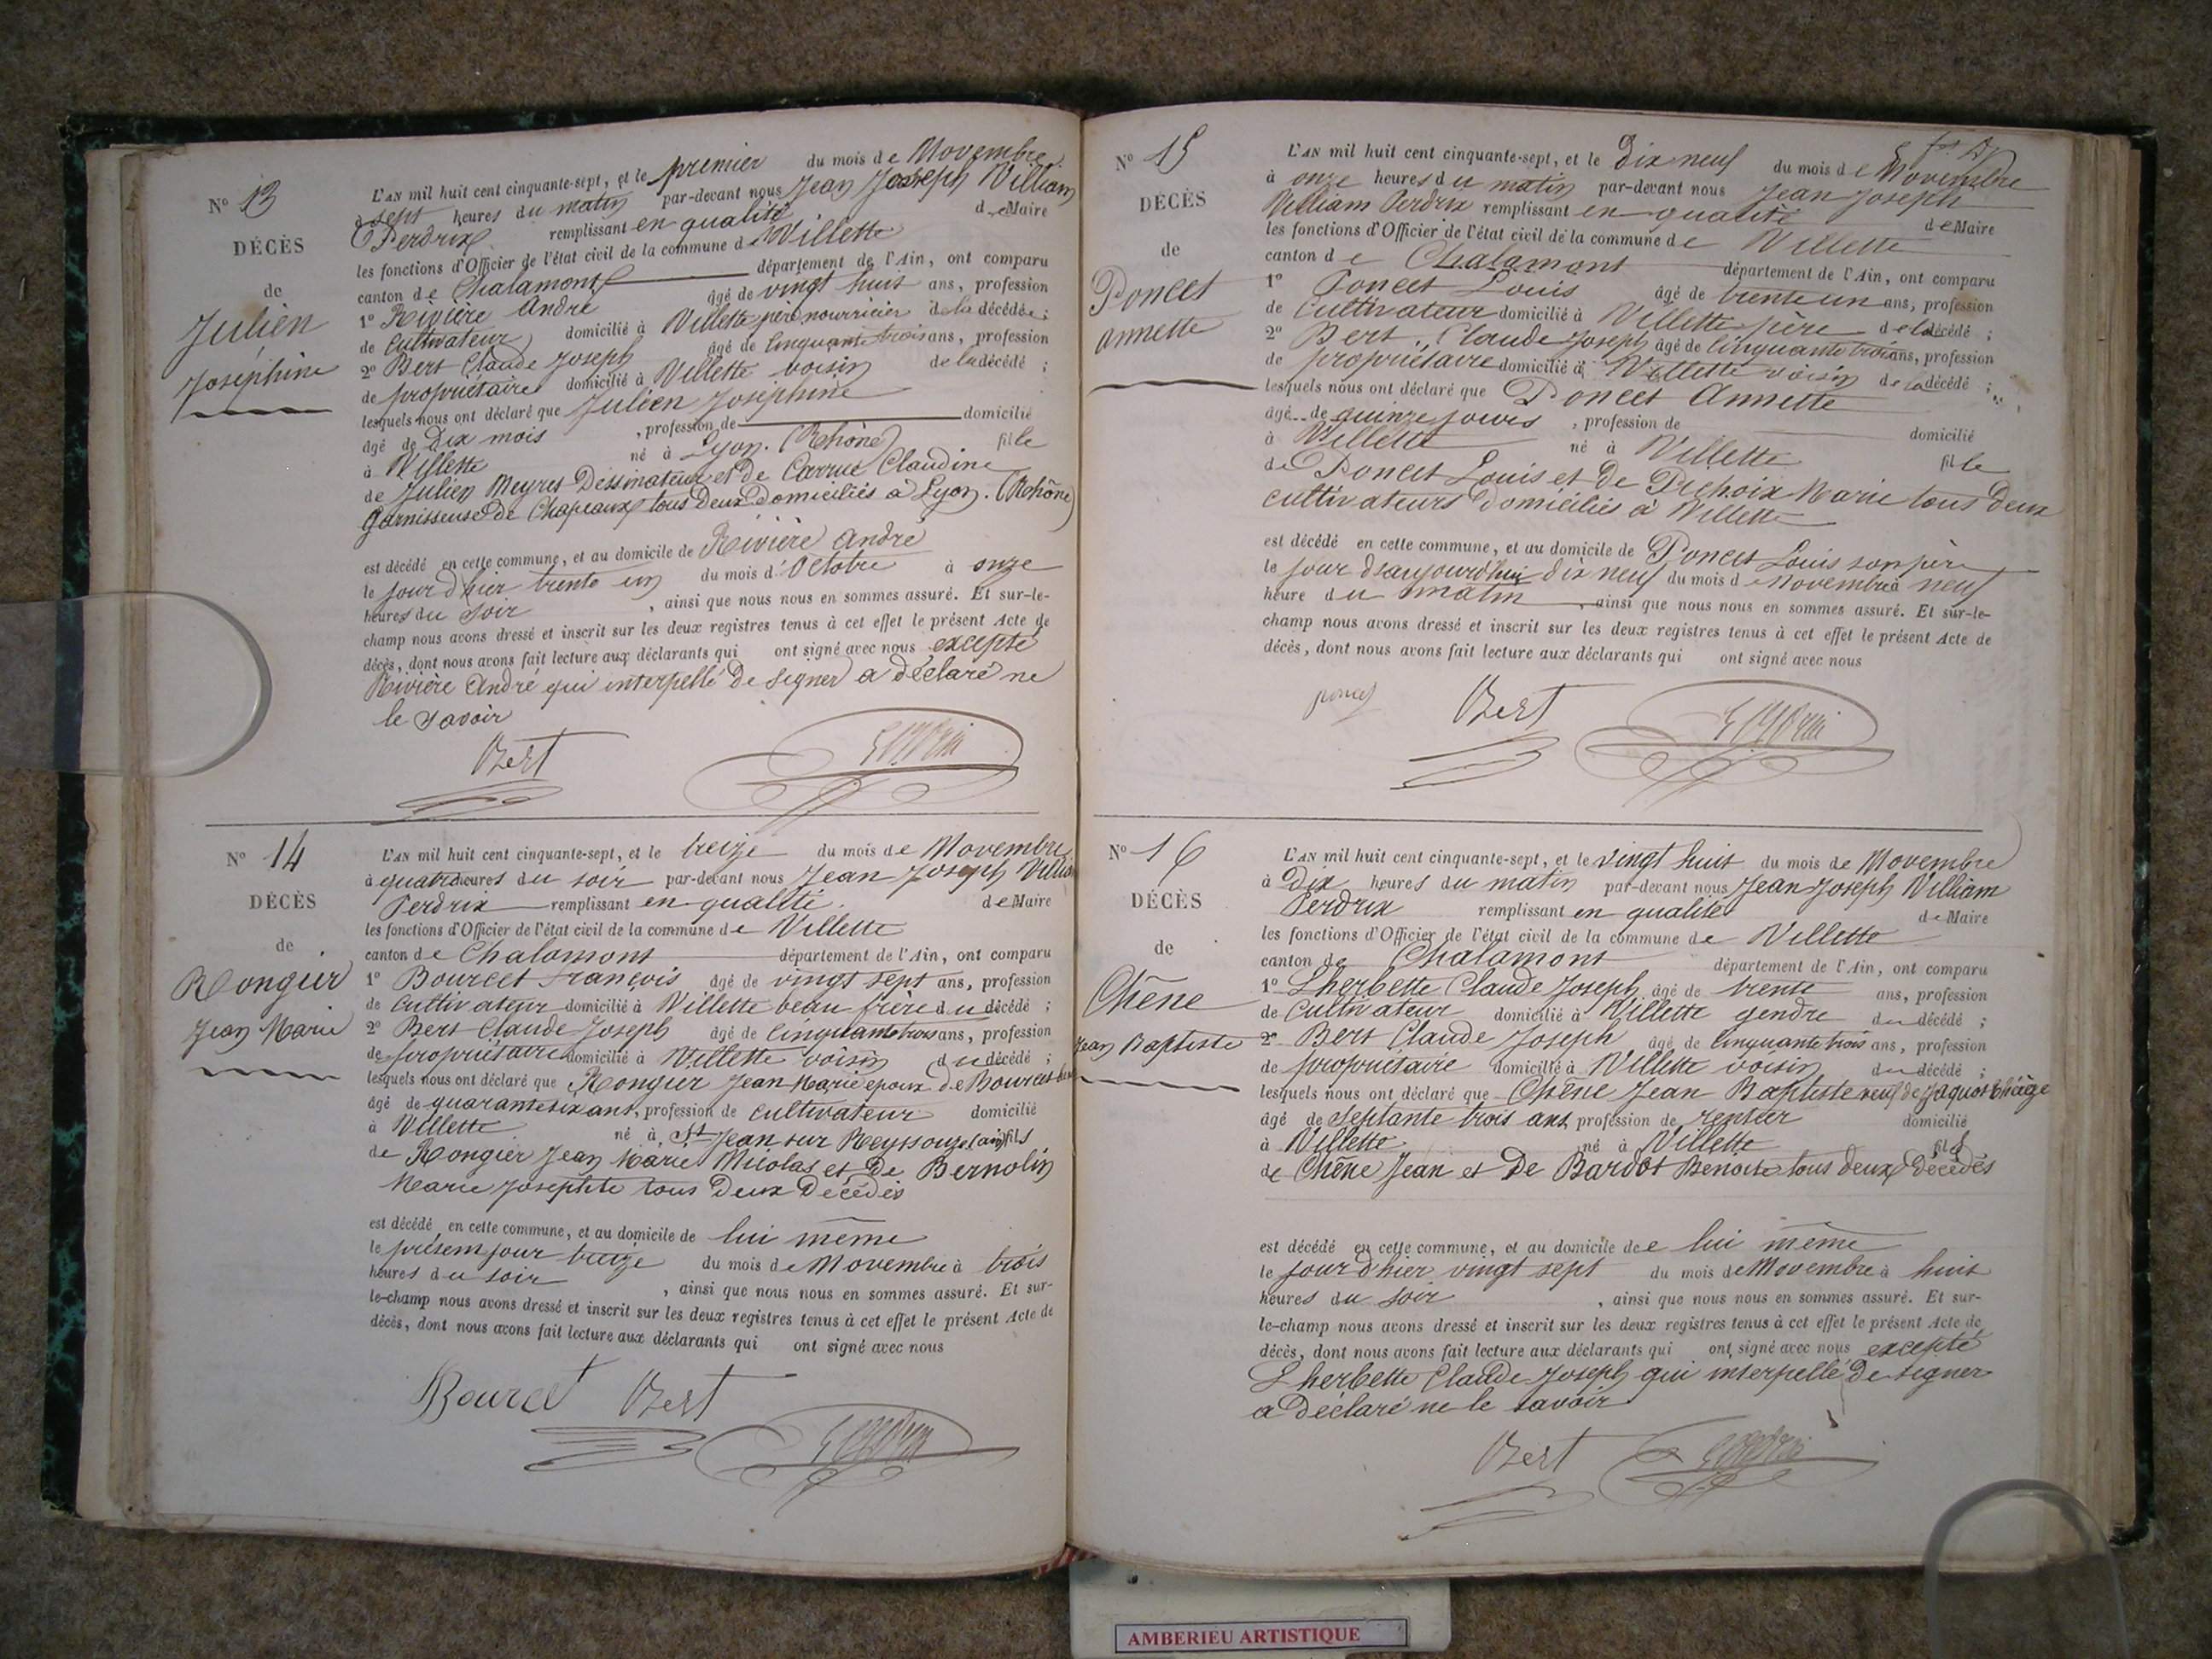 N° 13
DÉCÈS
de
Julien
Joséphine
L'AN mil huit cent cinquante-sept, et le premier du mois de Novembre
à sept heures du matin par-devant nous Jean Joseph William
Perdrix remplissant en qualité de Maire
les fonctions d'Officier de l'état civil de la commune de Villette
canton de Chalamont département de l'Ain, ont comparu
1° Rivière André âgé de vingt huit ans, profession
de Cultivateur domicilié à Villette père nourricier de la décédée;
2° Bert Claude Joseph âgé de Cinquante trois ans, profession
de propriétaire domicilié à Villette voisin de la décédé;
lesquels nous ont déclaré que Julien Joséphine
âgé de Dix mois, profession de domicilié
à Villette né à Lyon. (Rhône) fille
de Julien Meyret Dessinateur et de Carrue Claudine
Garnisseuse de Chapeaux tous Deux Domiciliés à Lyon. (Rhône)
est décédé en cette commune, et au domicile de Rivière André
le jour d'hier trente un du mois d'Octobre à onze
heures du soir, ainsi que nous nous en sommes assuré. Et sur-le-
champ nous avons dressé et inscrit sur les deux registres tenus à cet effet le présent Acte de
décès, dont nous avons fait lecture aux déclarants qui ont signé avec nous excepté
Rivière André qui interpellé De signer a déclaré ne
le savoir
Bert
N° 14
DÉCÈS
de
Rongier
Jean Marie
L'AN mil huit cent cinquante-sept, et le treize du mois de Novembre
à quatre heures du soir par-devant nous Jean Joseph William
Perdrix remplissant en qualité de Maire
les fonctions d'Officier de l'état civil de la commune de Villette
canton de Chalamont département de l'Ain, ont comparu
1° Bourcet François âgé de vingt sept ans, profession
de Cultivateur domicilié à Villette beau frère du décédé;
2° Bert Claude Joseph âgé de Cinquante trois ans, profession
de propriétaire domicilié à Villette voisin du décédé;
lesquels nous ont déclaré que Rongier Jean Marie epoux de Bourcet
âgé de quarante six ans, profession de Cultivateur domicilié
à Villette né à St Jean sur Reyssouze (ain) fils
de Rongier Jean Marie Nicolas et De Bernolin
Marie Josephte tous Deux Décédés
est décédé en cette commune, et au domicile de lui même
le présent jour treize du mois de Novembre à trois
heures du soir, ainsi que nous nous en sommes assuré. Et sur-
le-champ nous avons dressé et inscrit sur les deux registres tenus à cet effet le présent Acte de
décès, dont nous avons fait lecture aux déclarants qui ont signé avec nous
Bourcet Bert
N° 15
DÉCÈS
de
Poncet
Annette
L'AN mil huit cent cinquante-sept, et le Dix neuf du mois de Novembre
à onze heures du matin par-devant nous Jean Joseph
William Perdrix remplissant en qualité de Maire
les fonctions d'Officier de l'état civil de la commune de Villette
canton de Chalamont département de l'Ain, ont comparu
1° Poncet Louis âgé de trente un ans, profession
de Cultivateur domicilié à Villette père de la décédé;
2° Bert Claude Joseph âgé de Cinquante trois ans, profession
de propriétaire domicilié à Villette voisin de la décédé;
lesquels nous ont déclaré que Poncet Annette
âgé de quinze jours, profession de domicilié
à Villette né à Villette fille
de Poncet Louis et De Prehoix Marie tous Deux
cultivateurs Domiciliés à Villette
est décédé en cette commune, et au domicile de Poncet Louis son père
le jour D'aujourd'hui dix neuf du mois de Novembre à neuf
heure du matin, ainsi que nous nous en sommes assuré. Et sur-le-
champ nous avons dressé et inscrit sur les deux registres tenus à cet effet le présent Acte de
décès, dont nous avons fait lecture aux déclarants qui ont signé avec nous
poncet Bert
N° 16
DÉCÈS
de
Chêne
Jean Baptiste
L'AN mil huit cent cinquante-sept, et le vingt huit du mois de Novembre
à Dix heures du matin par-devant nous Jean Joseph William
Perdrix remplissant en qualité de Maire
les fonctions d'Officier de l'état civil de la commune de Villette
canton de Chalamont département de l'Ain, ont comparu
1° Lherbette Claude Joseph âgé de trente ans, profession
de Cultivateur domicilié à Villette gendre du décédé;
2° Bert Claude Joseph âgé de Cinquante trois ans, profession
de propriétaire domicilié à Villette voisin du décédé;
lesquels nous ont déclaré que Chêne Jean Baptiste veuf de Jaquot
âgé de septante trois ans, profession de rentier domicilié
à Villette né à Villette fils
de Chêne Jean et De Bardot Benoite tous deux Décédés
est décédé en cette commune, et au domicile de lui même
le jour d'hier vingt sept du mois de Novembre à huit
heures du soir, ainsi que nous nous en sommes assuré. Et sur-
le-champ nous avons dressé et inscrit sur les deux registres tenus à cet effet le présent Acte de
décès, dont nous avons fait lecture aux déclarants qui ont signé avec nous excepté
Lherbette Claude Joseph qui interpellé De signer
a Déclaré ne le savoir
Bert
AMBERIEU ARTISTIQUE